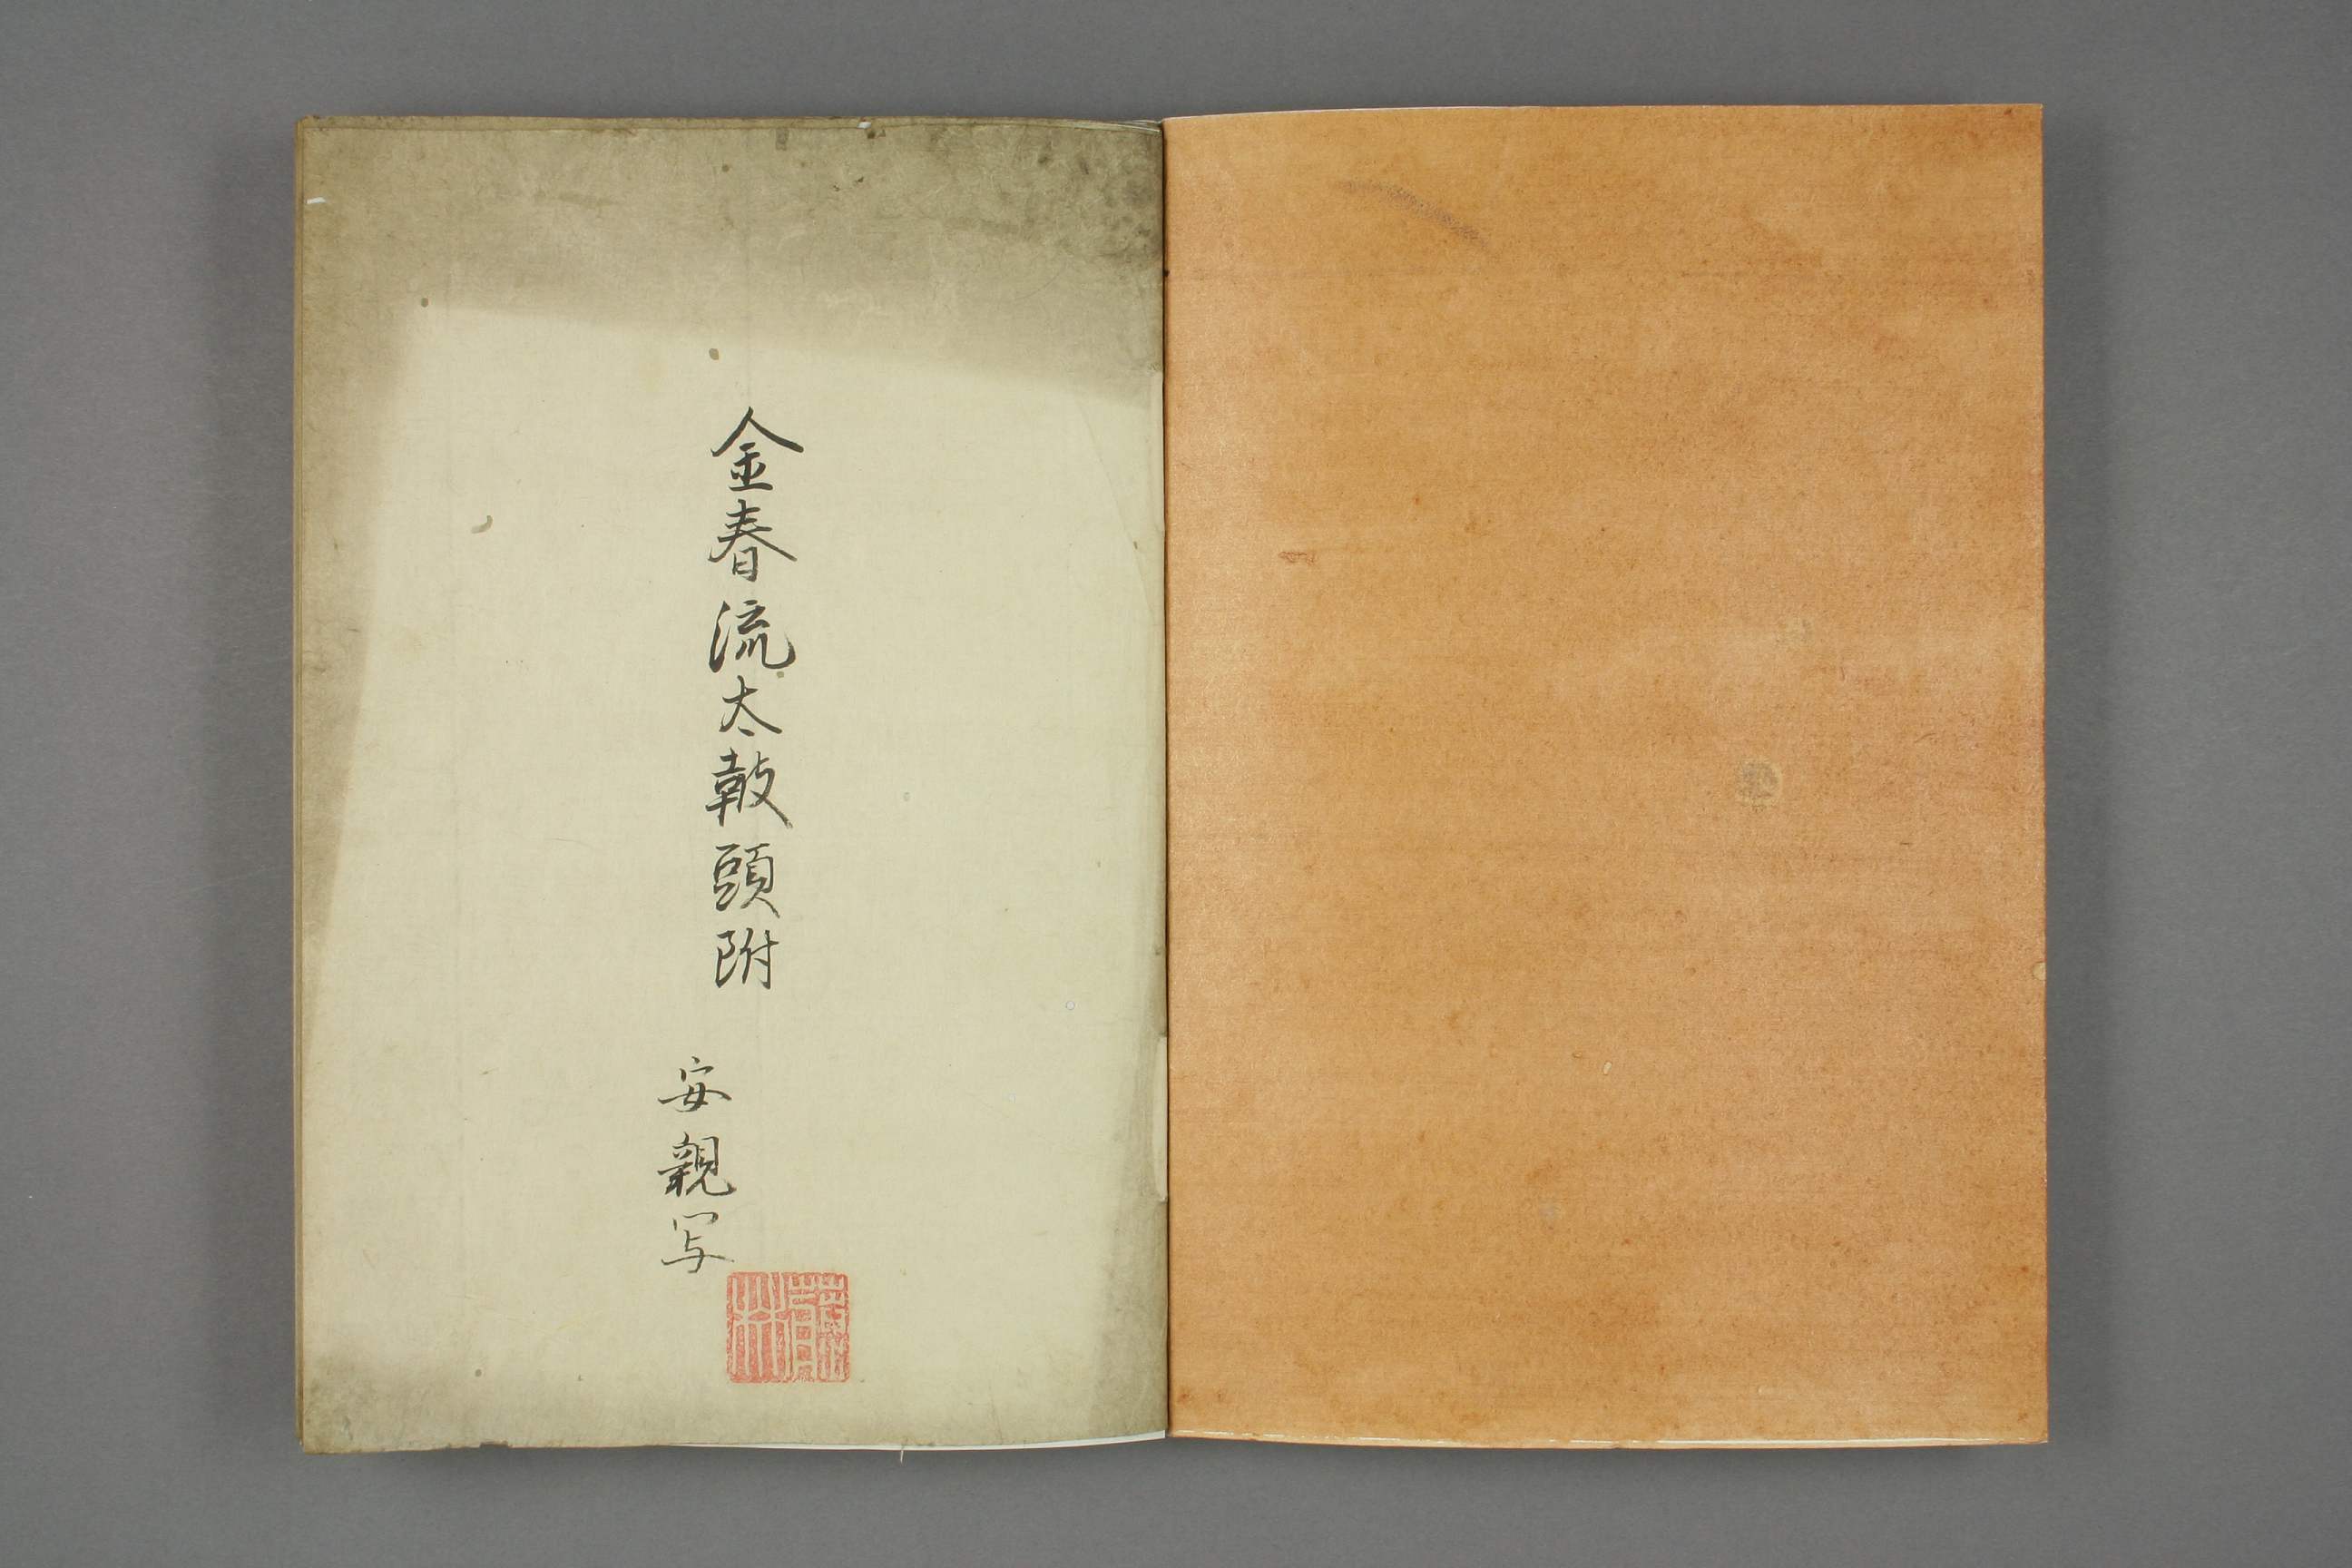 金春流太鼓頭附
安親写